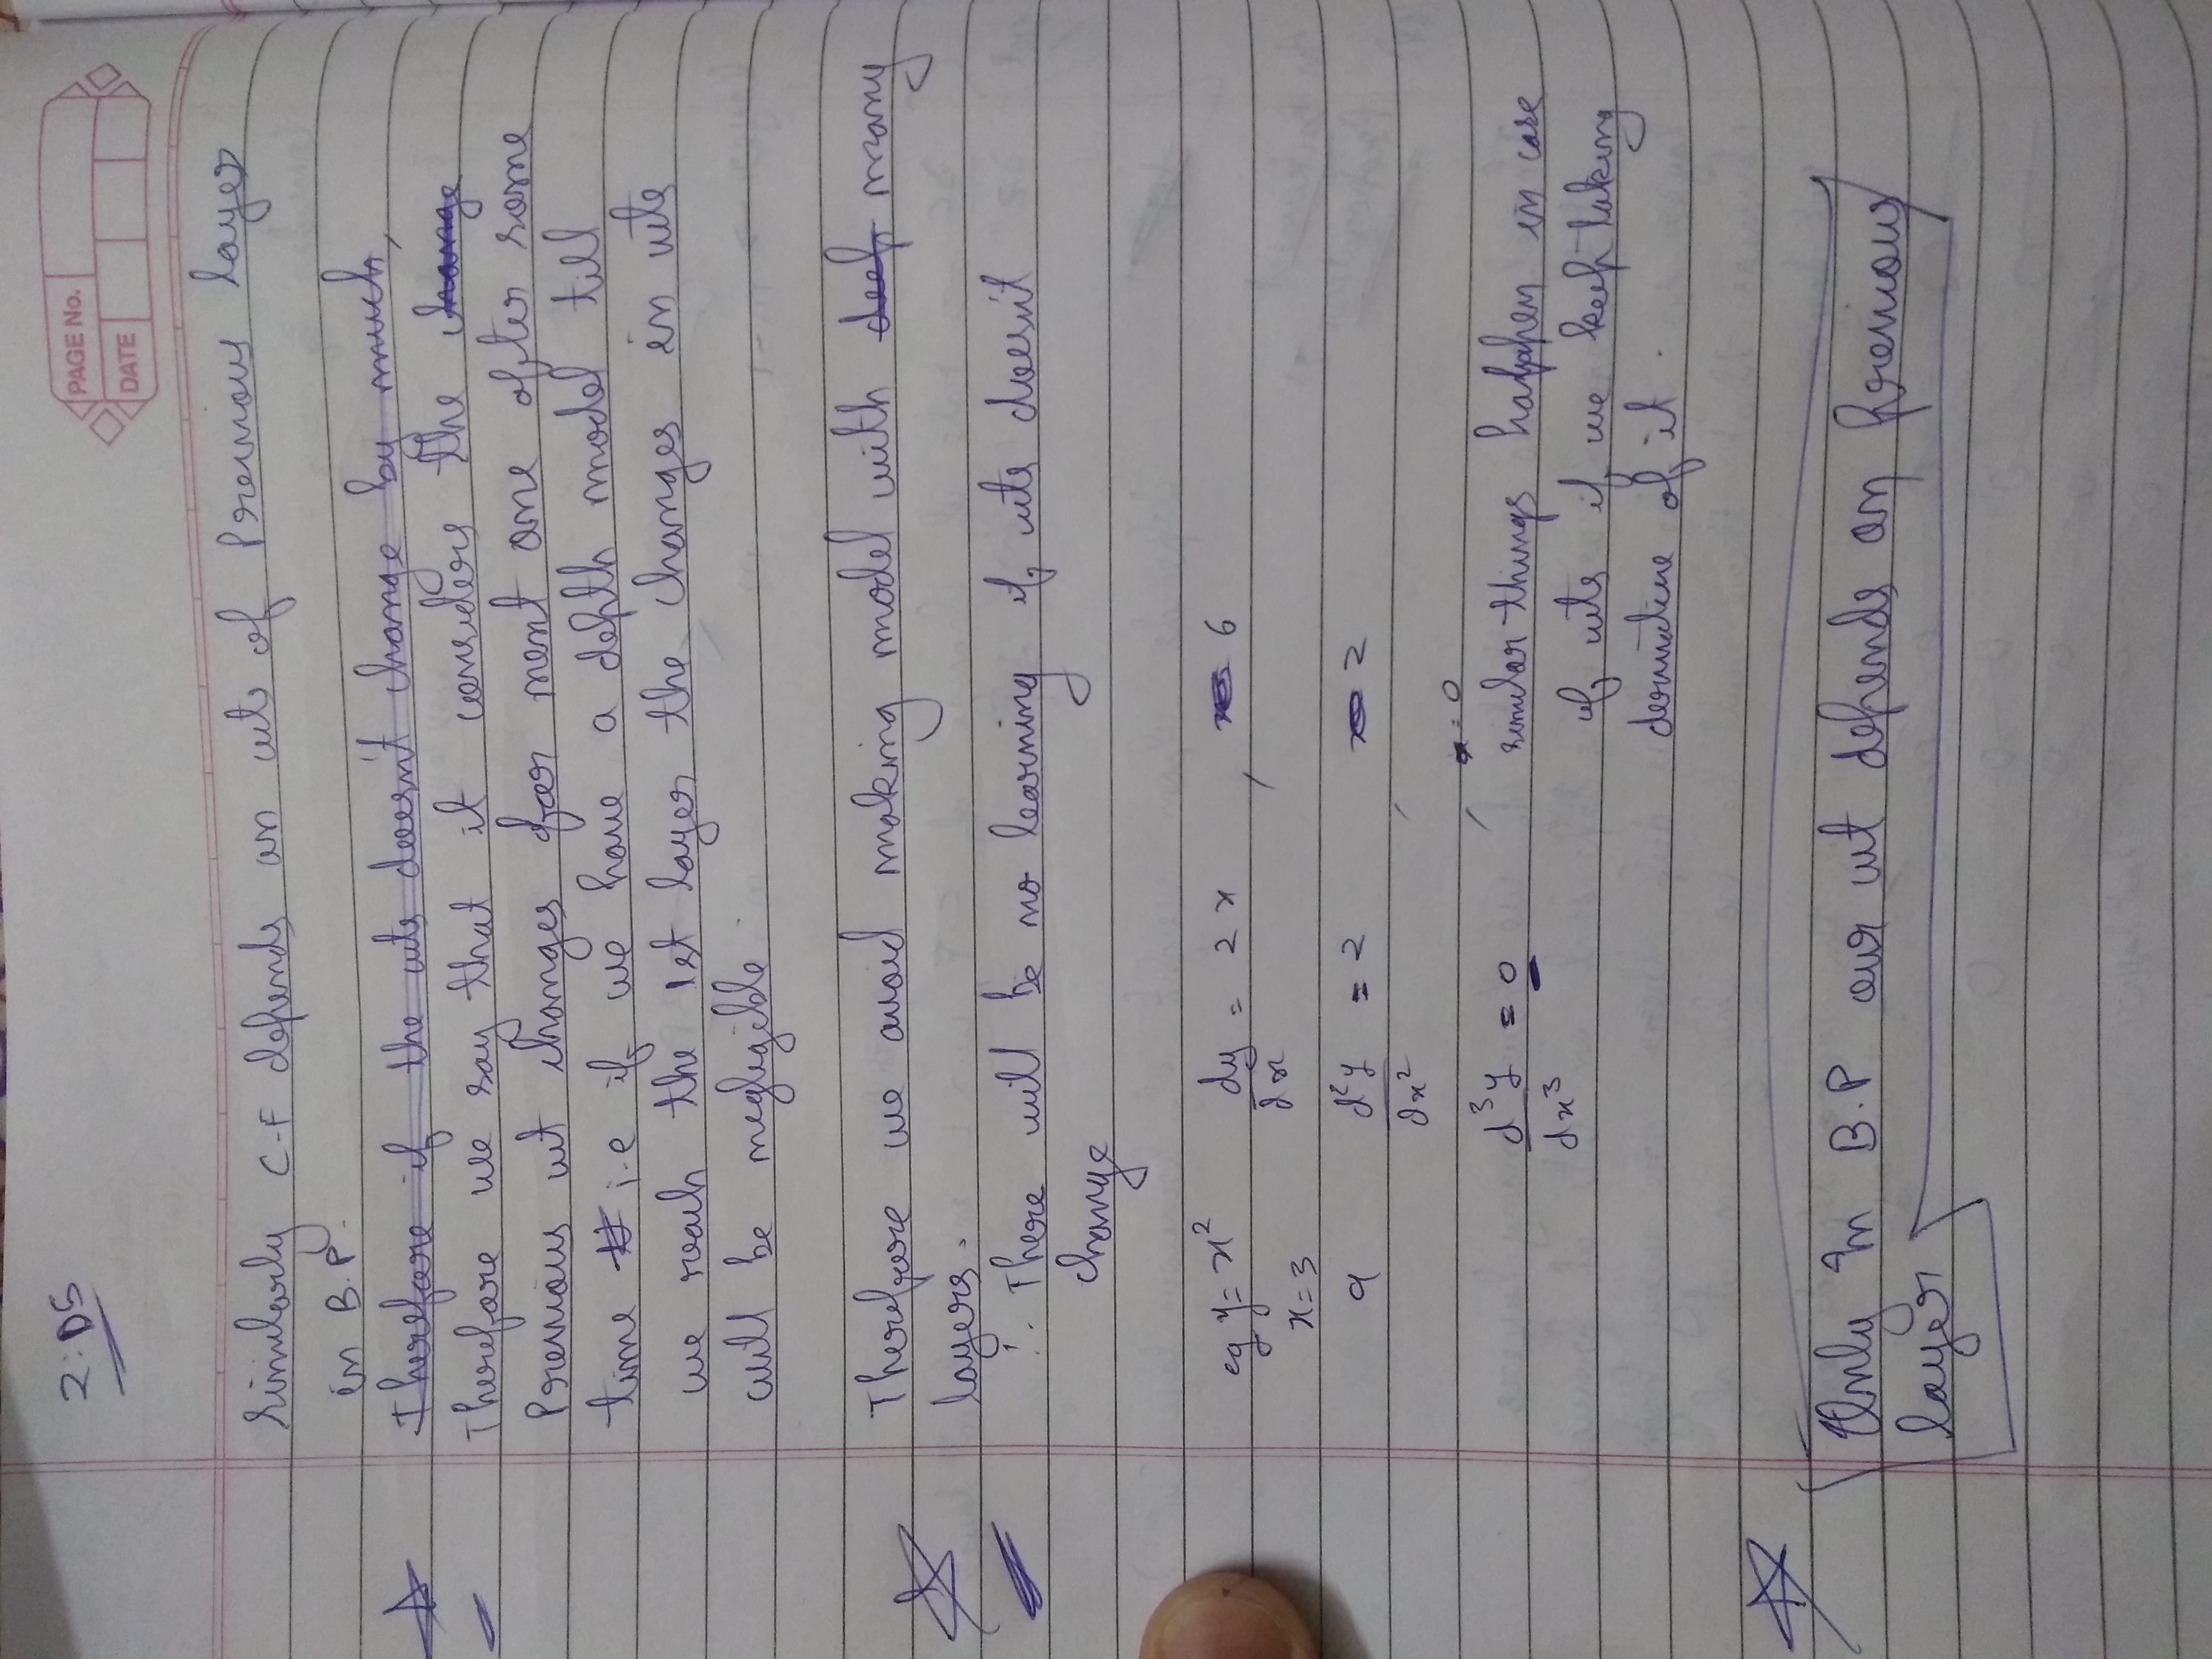 2:05
PAGE No.
DATE
Similarly C-F depends on wts of Previous layer
in B.P.
Therefore if the wts doesn't change by much,
Therefore we say that it considers the change
Previous wt changes for next one after some
time i.e if we have a depth model till
we reach the 1st layer the changes in wts
will be negligible
Therefore we avoid making model with deep many
layers.
∴ There will be no learning if wts doesn't
change
eg y = x² dy/dx = 2x , 6
x = 3
9 d²y/dx² = 2 , 2
= 0
d³y/dx³ = 0 , similar things happen in case
of wts if we keep taking
derivative of it.
Only In B.P our wt depends on previous
layer